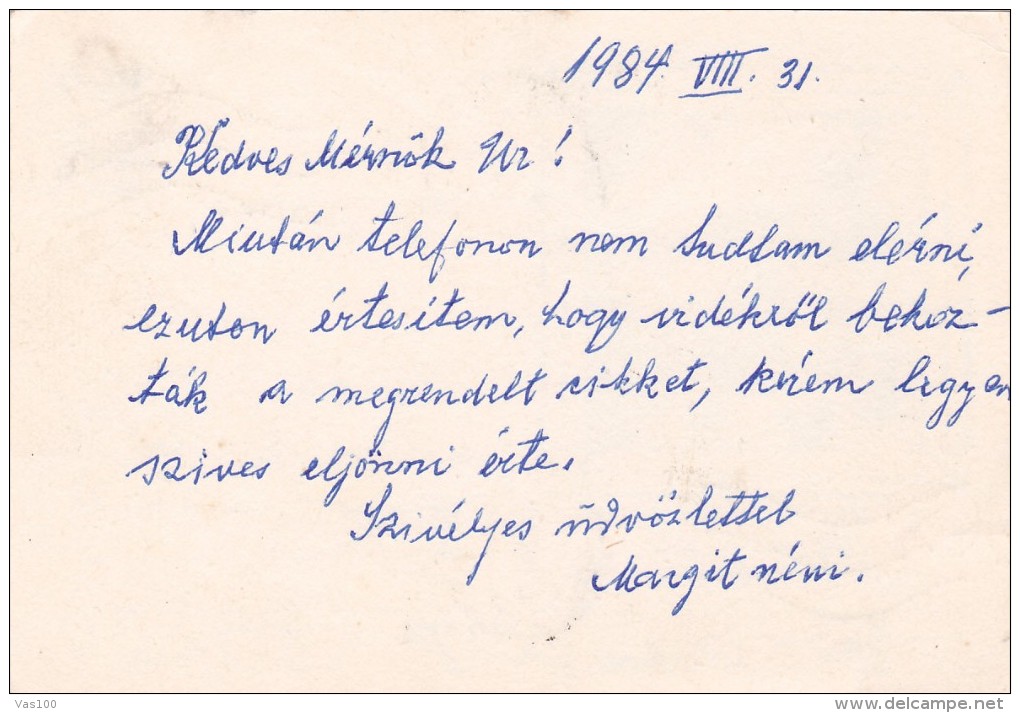 1984. VIII. 31.
Kedves Mérnök Ur!
Miután telefonon nem tudtam elérni,
ezuton értesítem, hogy vidékről behoz-
ták a megrendelt cikket, kérem legyen
szives eljönni érte.
Szivélyes üdvözlettel
Margit néni.
Vas100
delcampe.net